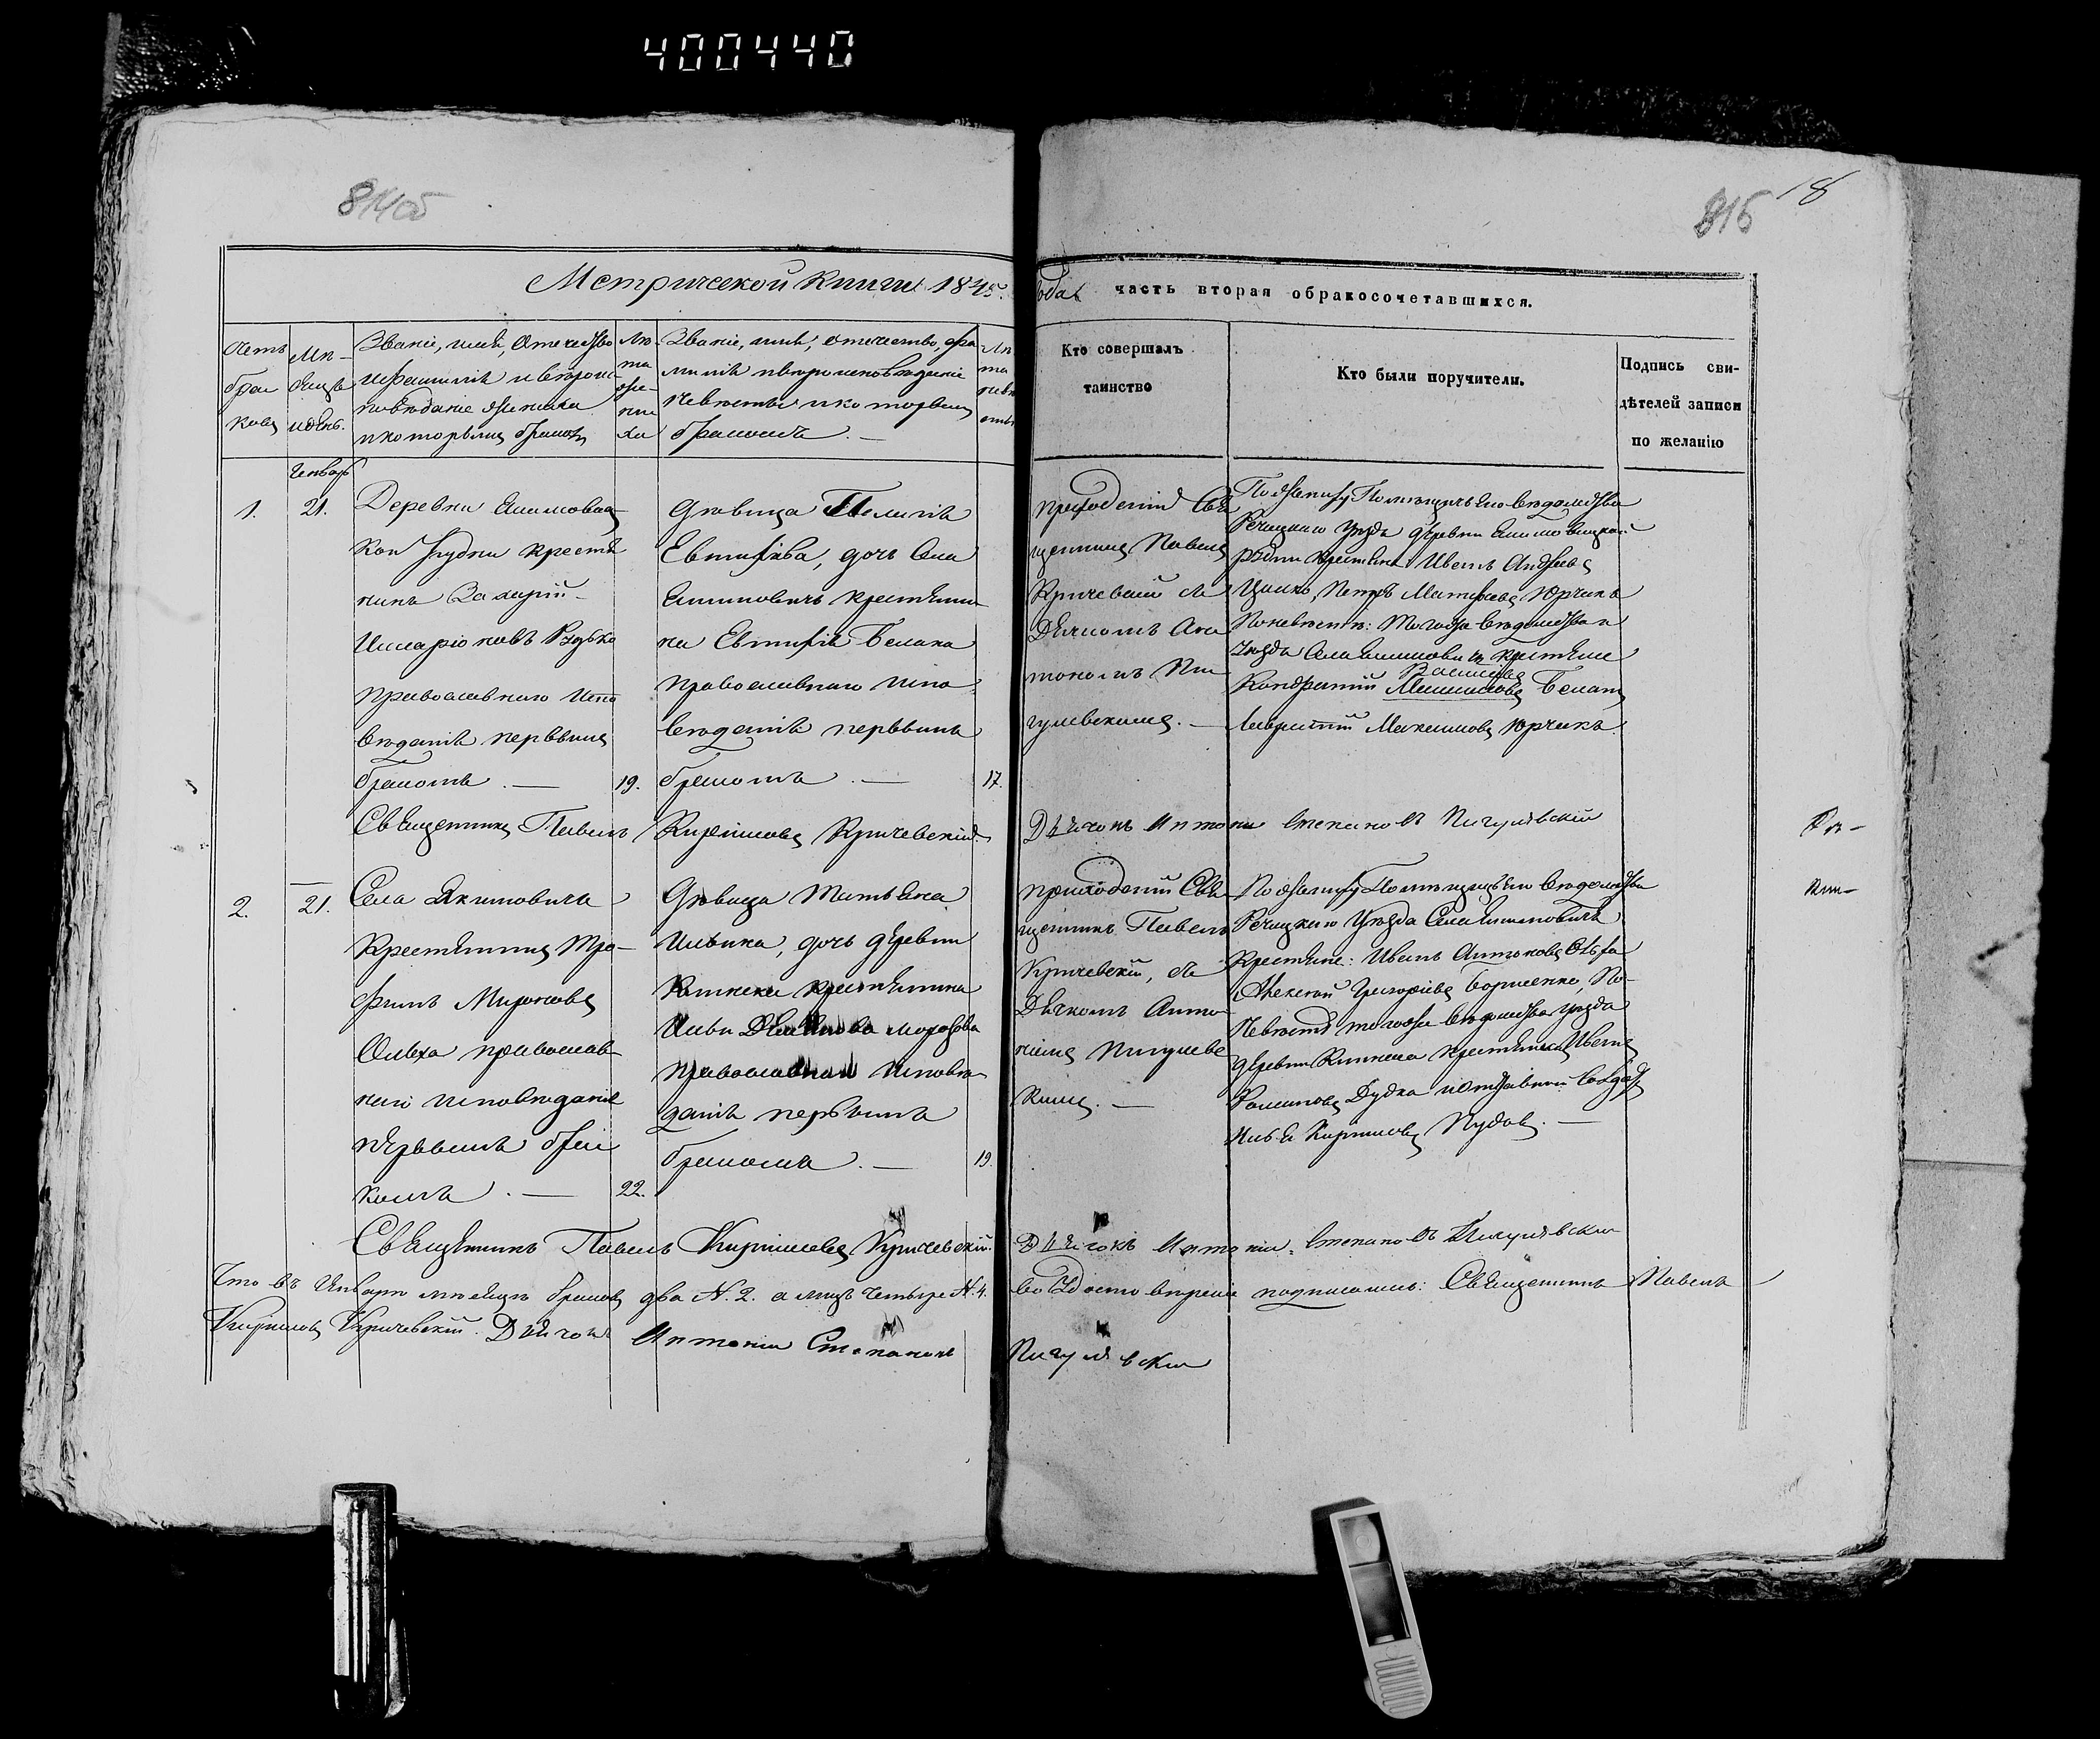 400440
814об
815 18
Метрической книги 184 года часть вторая обракосочетавшихся.
Счетъ браковъ
Мѣсяцъ и день.
Званіе, имя, отечество
и фамилія и вѣроис
повѣданіе жениха
и которымъ бракомъ
Лѣта жениха
Званіе, имя, отечество, фа
милія и вѣроисповѣданіе
невѣсты и которымъ
бракомъ. —
Лѣта невѣсты
Кто совершалъ
таинство
Кто были поручители.
Подпись сви-
дѣтелей записи
по желанію
Генварь
1.
21.
Деревни
кой Рудни крестья
нинъ Захарій
Илларіоновъ Рудько
православнаго испо
вѣданія первымъ
бракомъ. —
19.
Дѣвица Пелагія
Евтифіева, дочь села
Якимовичъ крестьяни
на Евтифія Белака
православнаго испо
вѣданія первымъ
бракомъ. —
17.
приходскій Свя
щенникъ Павелъ
Кричевскій съ
Дьячкомъ Анто
ніемъ Пи
гулевскимъ. —
По жениху Помѣщичьяго вѣдомства
Речицкаго уѣзда деревни
Рудни крестьяне Иванъ Андреевъ
Петръ Матфеевъ Юрчикъ
По невѣстѣ: того же вѣдомства и
уѣзда села Якимовичъ крестьяне
Васильевъ
Кондратій Белакъ
Максимовъ Юрчикъ.
Священникъ Павелъ Кириловъ Кричевскій.
Дьячокъ Антоній Степановъ Пигулевскій
2.
21.
Села Якимовича
Крестьянинъ Тро-
фимъ Мироновъ
Олѣха православ
наго исповѣданія
первымъ бра
комъ. —
22.
Дѣвица Татьяна
Ильина, дочь деревни
крестьянина
Ильи Морозова
православнаго исповѣ
данія первымъ
бракомъ. —
19.
приходскій Свя
щенникъ Павелъ
Кричевскій, съ
Дьячкомъ Анто
ніемъ Пигулевс
кимъ. —
По жениху Помѣщичьяго вѣдомства
Речицкаго Уѣзда Села Якимовичъ
Крестьяне: Иванъ Антоновъ Олѣха
Алексѣй Григорьевъ По
невѣстѣ того же вѣдомства уѣзда
деревни крестьянинъ Иванъ
Романовъ Дудка и отставной солдатъ
Илья Кириловъ Пудовъ. —
Священникъ Павелъ Кириловъ Кричевскій.
Дьячокъ Антоній Степановъ Пигулевскій
Что въ Январѣ мѣсяцѣ браковъ два N. 2. а лицъ четыре N. 4. во удостовѣреніе подписались: Священникъ Павелъ
Кириловъ Кричевскій. Дьячокъ Антоній Степановъ Пигулевскій